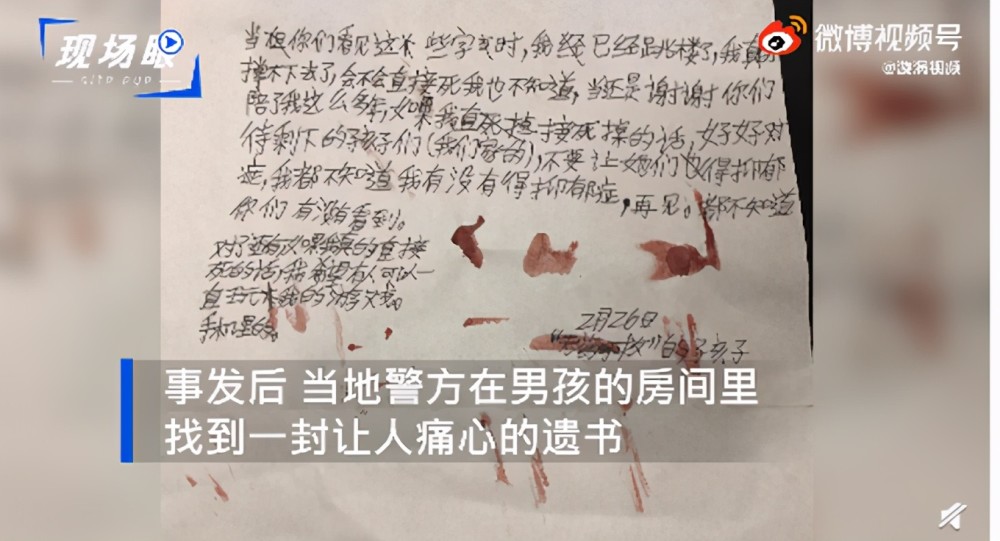 现场眼
微博视频号
当但你们看见这些字时，我经已经跳楼了，我真
撑不下去了，会不会直接死我也不知道，当还是谢谢你们
陪了我这么多年，如果我直死掉接死掉的话，好好对
待剩下的孩子们（我们家的），不要让她们也得抑郁
症，我都不知道我有没有得抑郁症，再见。都不知道
你们有没有看到。
对了还有如果我真的直接
死的话，我希望有人可以一
直玩我的游戏。
手机里的。
2月26日
的孩子
事发后 当地警方在男孩的房间里
找到一封让人痛心的遗书